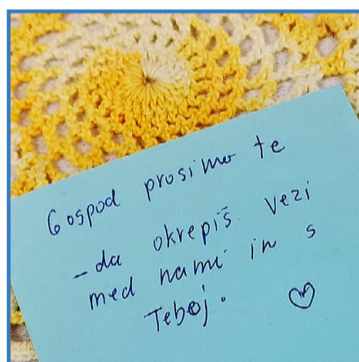 Gospod prosimo te
- da okrepiš vezi
med nami in s
Teboj. ♡